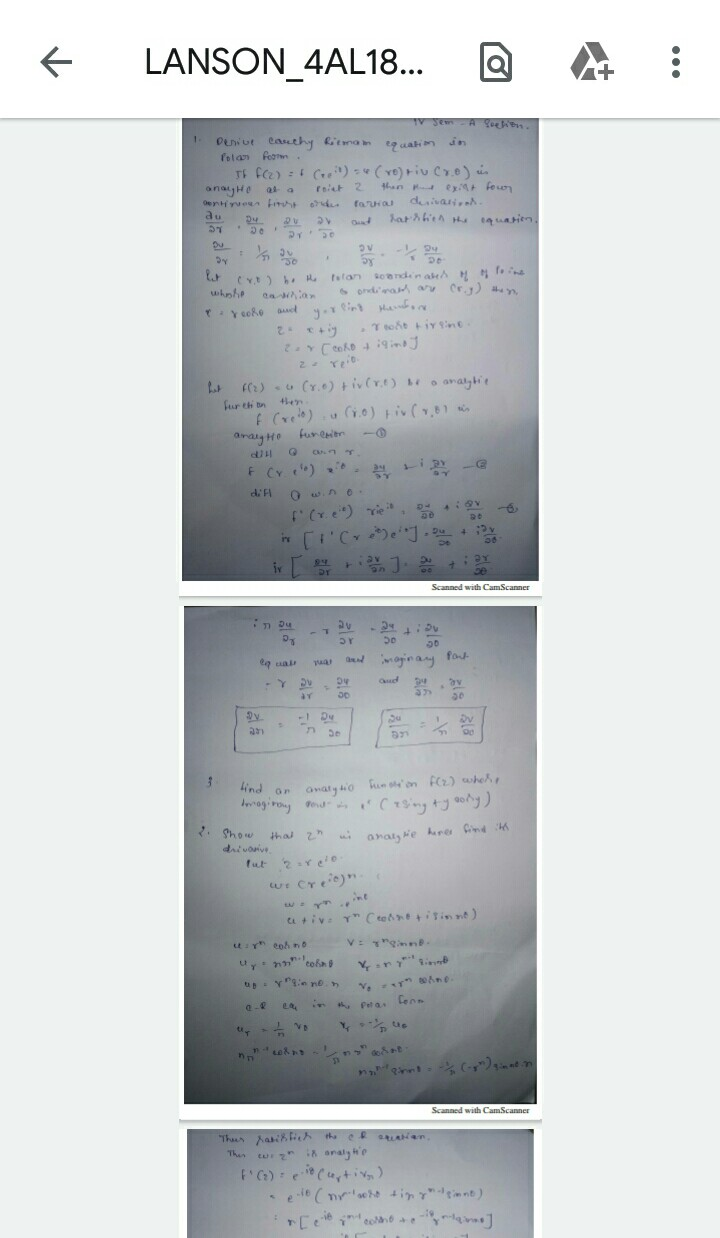 LANSON_4AL18...
IV Sem - A Section.
1. Derive Cauchy Riemann equation in
Polar form.
If f(z) = f (re^iθ) = u (rθ) + iv (r,θ) is
analytic at a point z then exist four
continuous first order partial derivatives.
∂u/∂r , ∂u/∂θ , ∂v/∂r , ∂v/∂θ and satisfies the equation.
∂u/∂r = 1/r ∂v/∂θ , ∂v/∂r = -1/r ∂u/∂θ
Let (r,θ) be the Polar coordinates of
whose cartisian co ordinates are (x,y) then
x = r cosθ and y = r sinθ therefore
z = x + iy = r cosθ + i r sinθ.
z = r [cosθ + i sinθ]
z = re^iθ
Let f(z) = u (r,θ) + iv(r,θ) be a analytic
function then.
f (re^iθ) = u (r,θ) + iv(r,θ) is
analytic function —①
diff ① w.r.t r.
f' (r e^iθ) e^iθ = ∂u/∂r + i ∂v/∂r —②
diff ① w.r.t θ.
f' (r e^iθ) rie^iθ = ∂u/∂θ + i ∂v/∂θ —③
ir [f' (r e^iθ) e^iθ] = ∂u/∂θ + i ∂v/∂θ
ir [∂u/∂r + i ∂v/∂r] = ∂u/∂θ + i ∂v/∂θ
Scanned with CamScanner
ir ∂u/∂r - r ∂v/∂r = ∂u/∂θ + i ∂v/∂θ
equate real and imaginary Part
- r ∂v/∂r = ∂u/∂θ and ∂u/∂r = ∂v/∂θ
∂v/∂r = -1/r ∂u/∂θ ∂u/∂r = 1/r ∂v/∂θ
3. find an analytic function f(z) whose
Imaginary Part is e^x (x siny + y cosy)
2. Show that z^n is analytic hence find its
derivative.
Put z = r e^iθ
w = (r e^iθ)^n
w = r^n . e^inθ
u + iv = r^n (cosnθ + i sin nθ)
u = r^n cosnθ v = r^n sin nθ.
u_r = nr^n-1 cosnθ v_r = n r^n-1 sin nθ
u_θ = r^n sin nθ . n v_θ = nr^n cosnθ.
C-R eq in the Polar form
u_r = 1/r v_θ v_r = -1/r u_θ
nr^n-1 cosnθ = 1/r n r^n cosnθ.
nr^n-1 sin nθ = -1/r (-r^n) sin nθ . n
Scanned with CamScanner
Thus satisfies the C-R equation.
Thus w = z^n is analytic
f'(z) = e^-iθ (u_r + iv_r)
= e^-iθ (nr^n-1 cosnθ + in r^n-1 sin nθ)